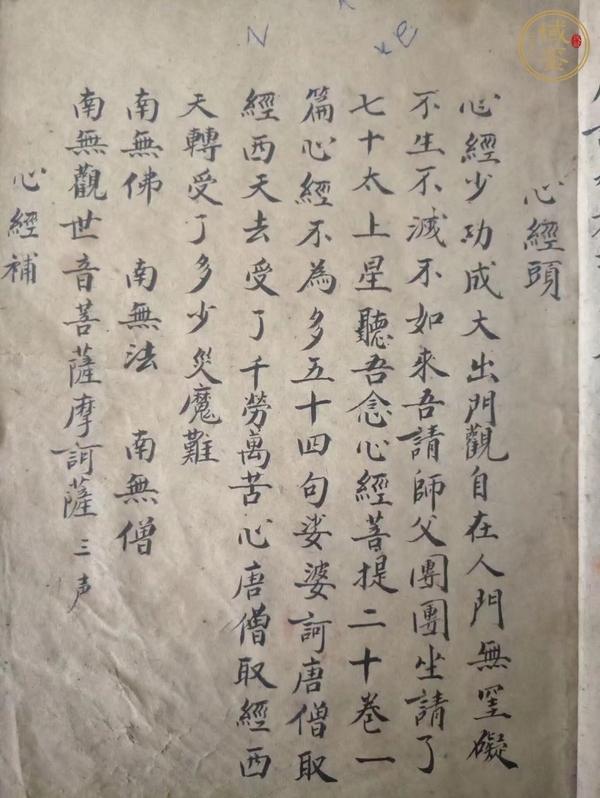 心經頭
心經少功成大出門觀自在人門無罣礙
不生不滅不如來吾請師父團團坐請了
七十太上星聽吾念心經菩提二十卷一
篇心經不為多五十四句娑婆訶唐僧取
經西天去受了千勞萬苦心唐僧取經西
天轉受了多少災魔難
南無佛 南無法 南無僧
南無觀世音菩薩摩訶薩 三声
心經補